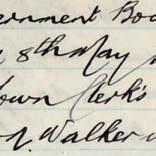 ernment Boa
8th May
Town Clerk's
Walker